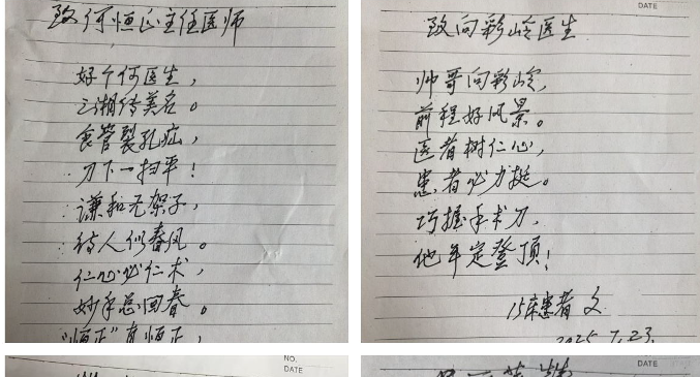 致何恒正主任医师
好个何医生，
三湘传美名。
食管裂孔疝，
刀下一扫平！
谦和无架子，
待人似春风。
仁心必仁术，
妙手总回春。
“恒正”有恒正，
DATE
致向彩岭医生
帅哥向彩岭，
前程好风景。
医者树仁心，
患者必力挺。
巧握手术刀，
他年定登顶！
15床患者 文
2025.7.23.
NO.
DATE
DATE